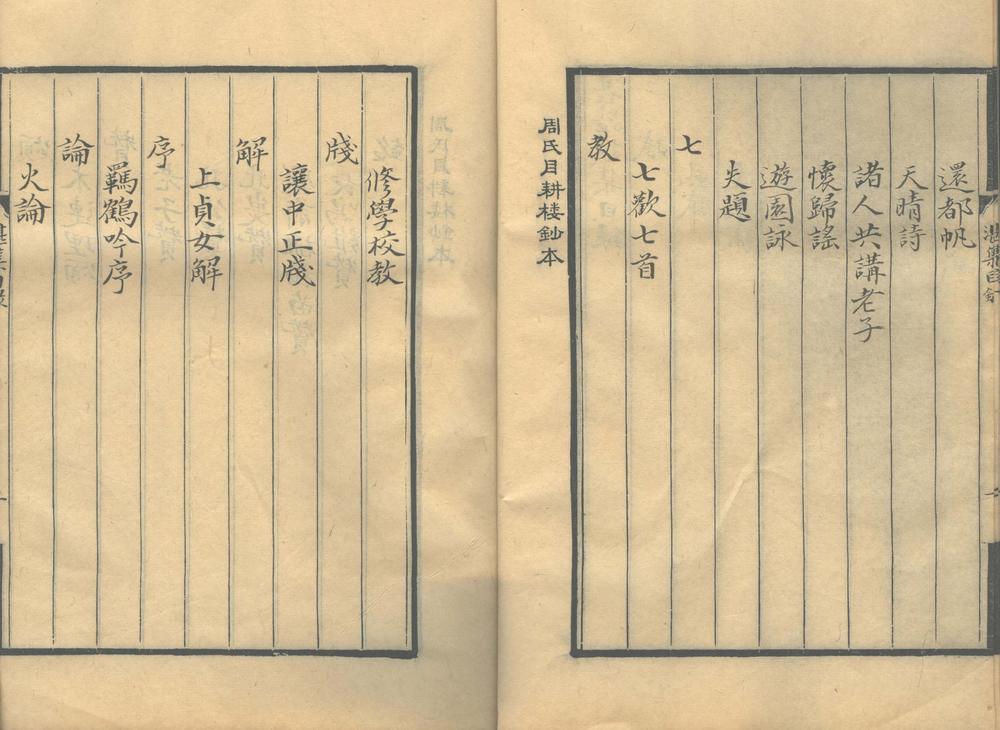 還都帆
天晴詩
諸人共講老子
懷歸謠
遊園詠
失題
七
七歡七首
教
周氏目耕樓鈔本
修學校教
牋
讓中正牋
解
上貞女解
序
羈鶴吟序
論
火論